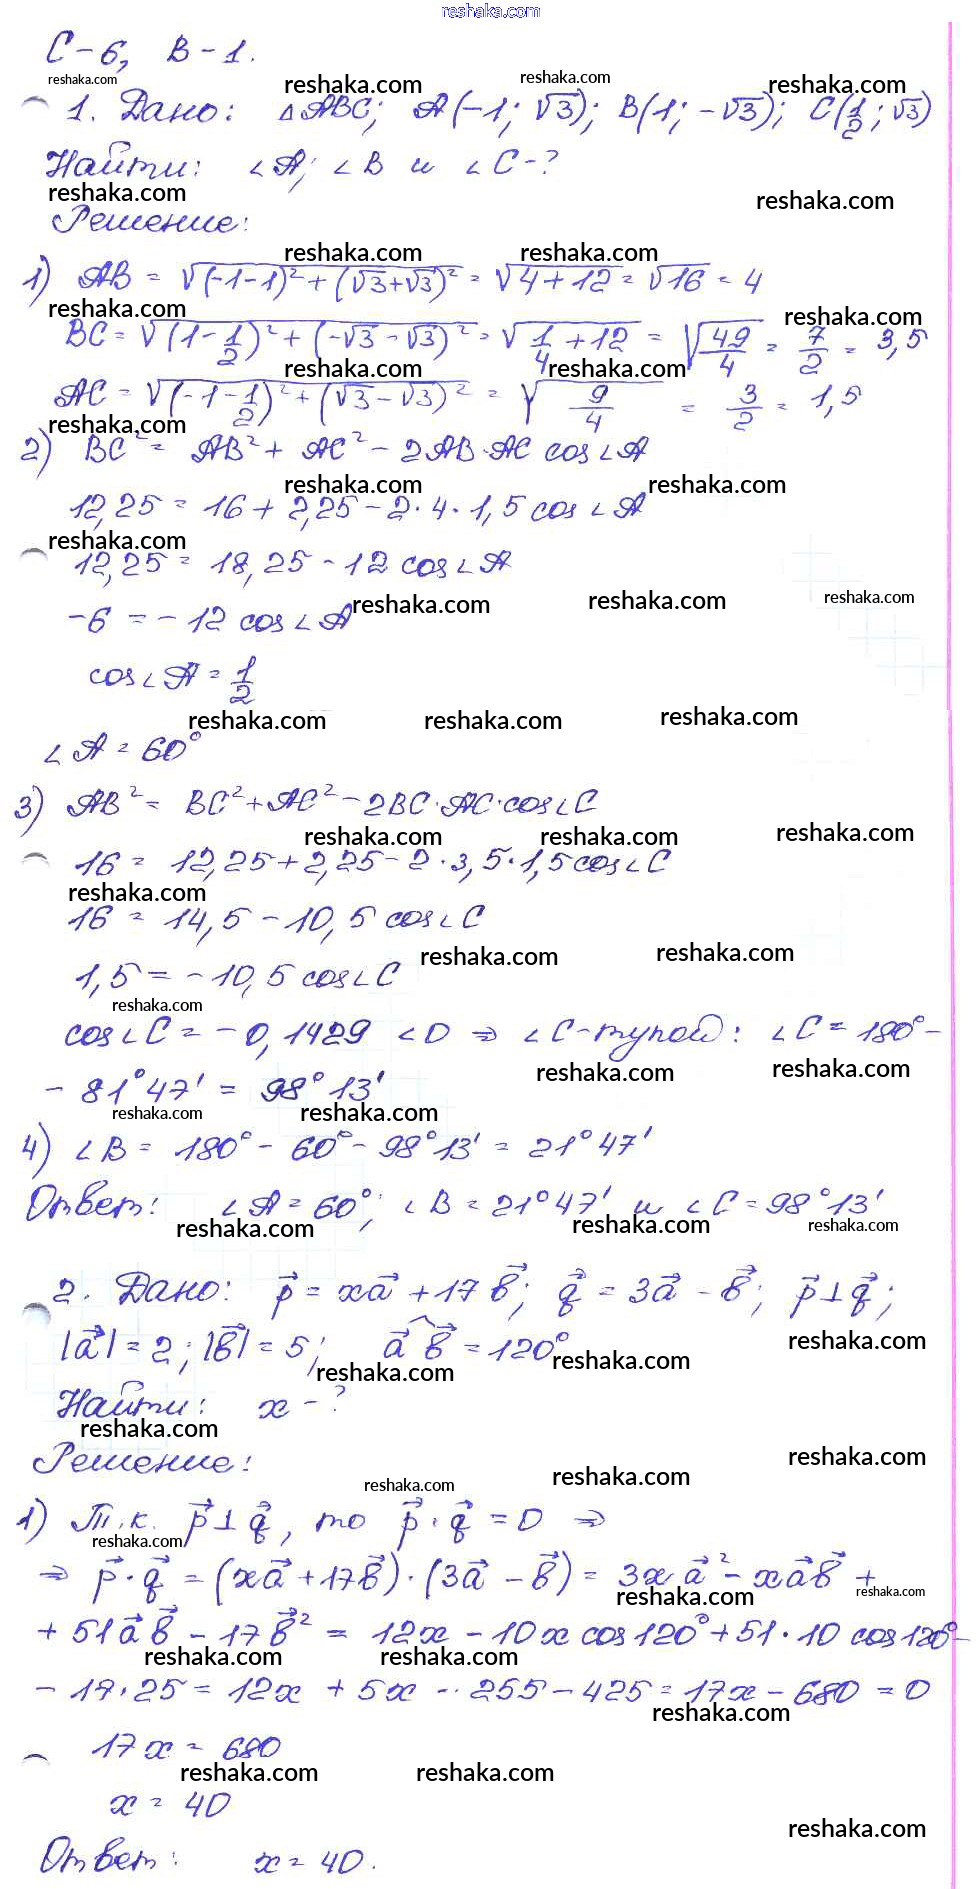 reshaka.com
С-6, В-1.
1. Дано: △ABC; A(-1; √3); B(1; -√3); C(1/2; √3)
Найти: ∠A; ∠B и ∠C-?
Решение:
1) AB = √((-1-1)² + (√3+√3)²) = √(4+12) = √16 = 4
BC = √((1-1/2)² + (-√3-√3)²) = √(1/4 + 12) = √(49/4) = 7/2 = 3,5
AC = √((-1-1/2)² + (√3-√3)²) = √(9/4) = 3/2 = 1,5
2) BC² = AB² + AC² - 2AB·AC cos∠A
12,25 = 16 + 2,25 - 2·4·1,5 cos∠A
12,25 = 18,25 - 12 cos∠A
-6 = -12 cos∠A
cos∠A = 1/2
∠A = 60°
3) AB² = BC² + AC² - 2BC·AC·cos∠C
16 = 12,25 + 2,25 - 2·3,5·1,5 cos∠C
16 = 14,5 - 10,5 cos∠C
1,5 = -10,5 cos∠C
cos∠C = -0,1429 < 0 ⇒ ∠C-тупой: ∠C = 180° -
- 81°47' = 98°13'
4) ∠B = 180° - 60° - 98°13' = 21°47'
Ответ: ∠A = 60°; ∠B = 21°47' и ∠C = 98°13'
2. Дано: p⃗ = xa⃗ + 17b⃗; q⃗ = 3a⃗ - b⃗; p⃗ ⊥ q⃗;
|a⃗| = 2; |b⃗| = 5; a⃗ ^ b⃗ = 120°
Найти: x-?
Решение:
1) Т.к. p⃗ ⊥ q⃗, то p⃗·q⃗ = 0 ⇒
⇒ p⃗·q⃗ = (xa⃗ + 17b⃗)·(3a⃗ - b⃗) = 3xa⃗² - xa⃗b⃗ +
+ 51a⃗b⃗ - 17b⃗² = 12x - 10x cos120° + 51·10 cos120° -
- 17·25 = 12x + 5x - 255 - 425 = 17x - 680 = 0
17x = 680
x = 40
Ответ: x = 40.